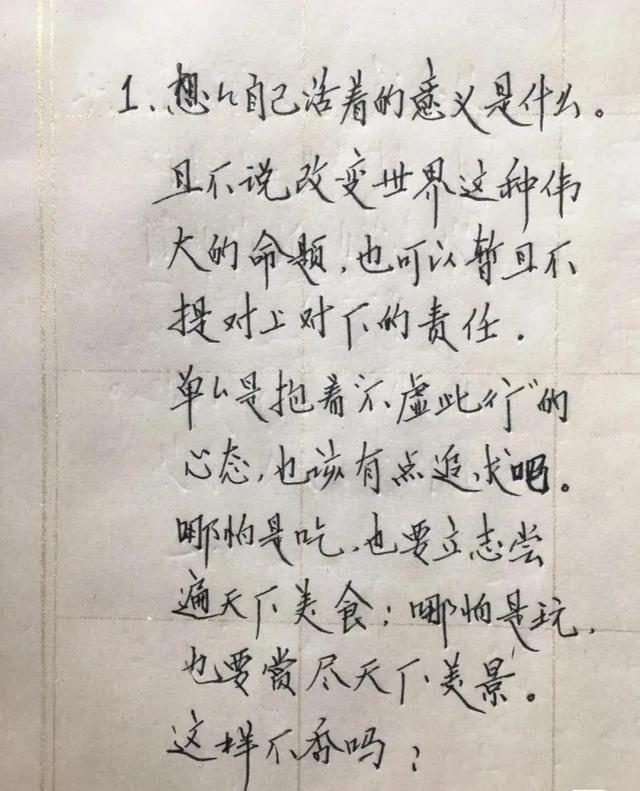 1、想想自己活着的意义是什么。
且不说改变世界这种伟
大的命题，也可以暂且不
提对上对下的责任．
单单是抱着“不虚此行”的
心态，也该有点追求吧。
哪怕是吃，也要立志尝
遍天下美食；哪怕是玩，
也要赏尽天下美景。
这样不香吗？